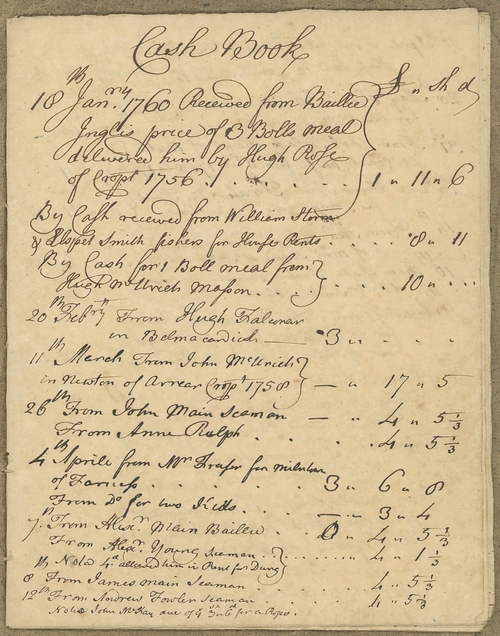 Cash Book
£ " sh d
18th Janry. 1760 Received from Baillie
Inglis price of 3 Bolls meal
delivered him by Hugh Rose
of Cropt 1756 . . . . . 1 " 11 " 6
By Cash received from William
& Elspet Smith fishers for House Rents . . . . 8 " 11
By Cash for 1 Boll meal from
Hugh McUrich Masson . . . . . 10 " ...
20th Febry From Hugh Falconar
in Belmacardich — 3 " . . .
11th March From John McUrich
in Newton of Arrear Cropt 1758 — " 17 " 5
26th From John Main Seaman — " 4 " 5 1/3
From Anne Ralph . . . . . 4 " 5 1/3
4th Aprile from Mr Fraser for
of Farness . . . . . 3 " 6 " 8
From Do for two Kids . . — " 3 " 4
7th From Alexr. Main Baillie . . 0 " 4 " 5 1/3
From Alexr. Young Seaman . . . . . 4 " 1 1/3
Nota 4d allowed him in Rent for Dung
8th From James Main Seaman . . . . 4 " 5 1/3
12th From Andrew Fowler Seaman . . . 4 " 5 1/3
Nota John McKay due of 4 sh 6d for a Rope.